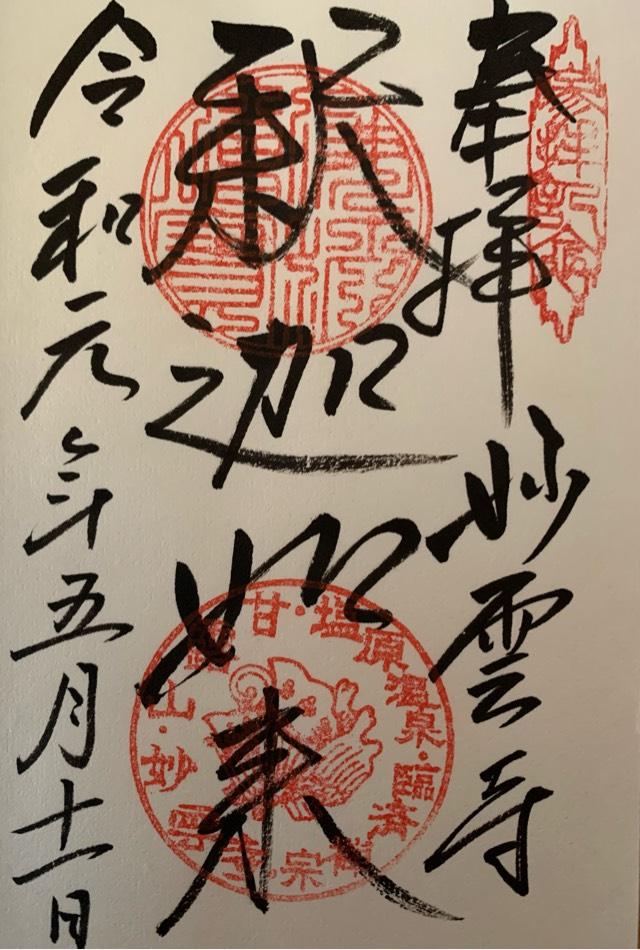 奉拝
妙雲寺
釈迦如来
令和元年五月十一日
塩原温泉・臨済禅宗
妙雲寺
甘露山・
参拝記念